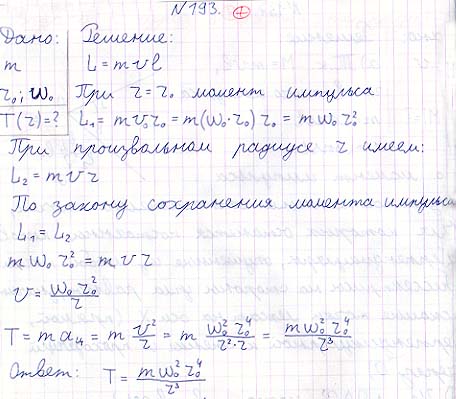 N 193. +
Дано: Решение:
m L = mvl
r₀; w₀ При r = r₀ момент импульса
T(r) = ? L₁ = mv₀r₀ = m(w₀·r₀) r₀ = mw₀r₀²
При произвольном радиусе r имеем:
L₂ = mvr
По закону сохранения момента импульса
L₁ = L₂
mw₀r₀² = mvr
v = w₀r₀²/r
T = maц = m v²/r = m w₀²r₀⁴/r²·r = mw₀²r₀⁴/r³
Ответ: T = mw₀²r₀⁴/r³